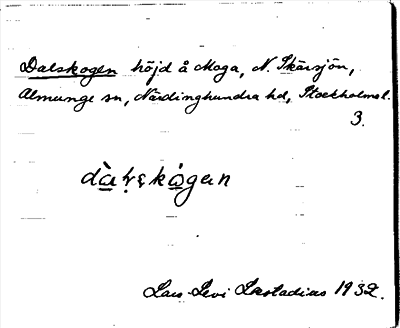 Dalskogen höjd å Moga, N. Skärsjön,
Almunge sn, Närdinghundra hd, Stockholms l.
3.
dàḷskògen
Lars Levi Læstadius 1932.